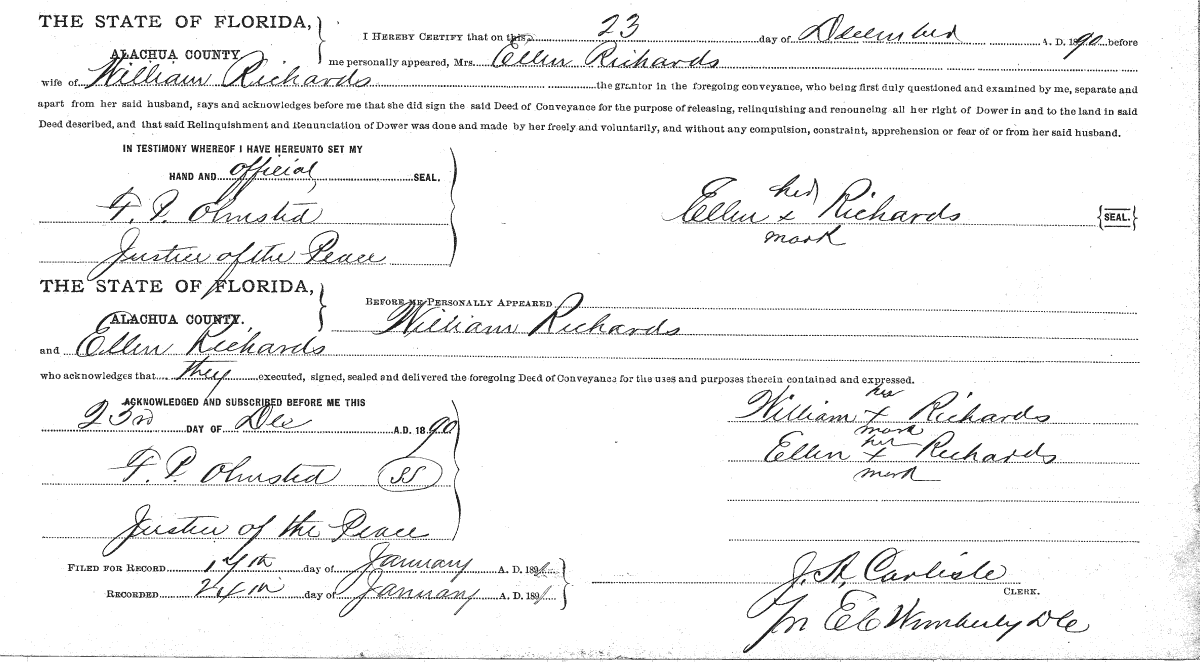 THE STATE OF FLORIDA,
ALACHUA COUNTY
I HEREBY CERTIFY that on this 23 day of December A. D. 1890 before
me personally appeared, Mrs. Ellen Richards
wife of William Richards the grantor in the foregoing conveyance, who being first duly questioned and examined by me, separate and
apart from her said husband, says and acknowledges before me that she did sign the said Deed of Conveyance for the purpose of releasing, relinquishing and renouncing all her right of Dower in and to the land in said
Deed described, and that said Relinquishment and Renunciation of Dower was done and made by her freely and voluntarily, and without any compulsion, constraint, apprehension or fear of or from her said husband.
IN TESTIMONY WHEREOF I HAVE HEREUNTO SET MY
HAND AND official SEAL.
F. P. Olmsted
Justice of the Peace
her
Ellen x Richards
mark
SEAL.
THE STATE OF FLORIDA,
ALACHUA COUNTY.
BEFORE ME PERSONALLY APPEARED
William Richards
and Ellen Richards
who acknowledges that they executed, signed, sealed and delivered the foregoing Deed of Conveyance for the uses and purposes therein contained and expressed.
ACKNOWLEDGED AND SUBSCRIBED BEFORE ME THIS
23rd DAY OF Dec A.D. 1890
F. P. Olmsted SS
Justice of the Peace
his
William x Richards
mark
her
Ellen x Richards
mark
FILED FOR RECORD 17th day of January A. D. 1891
RECORDED 24th day of January A. D. 1891
J. A. Carlisle
CLERK.
Pr E C Wimberly D C